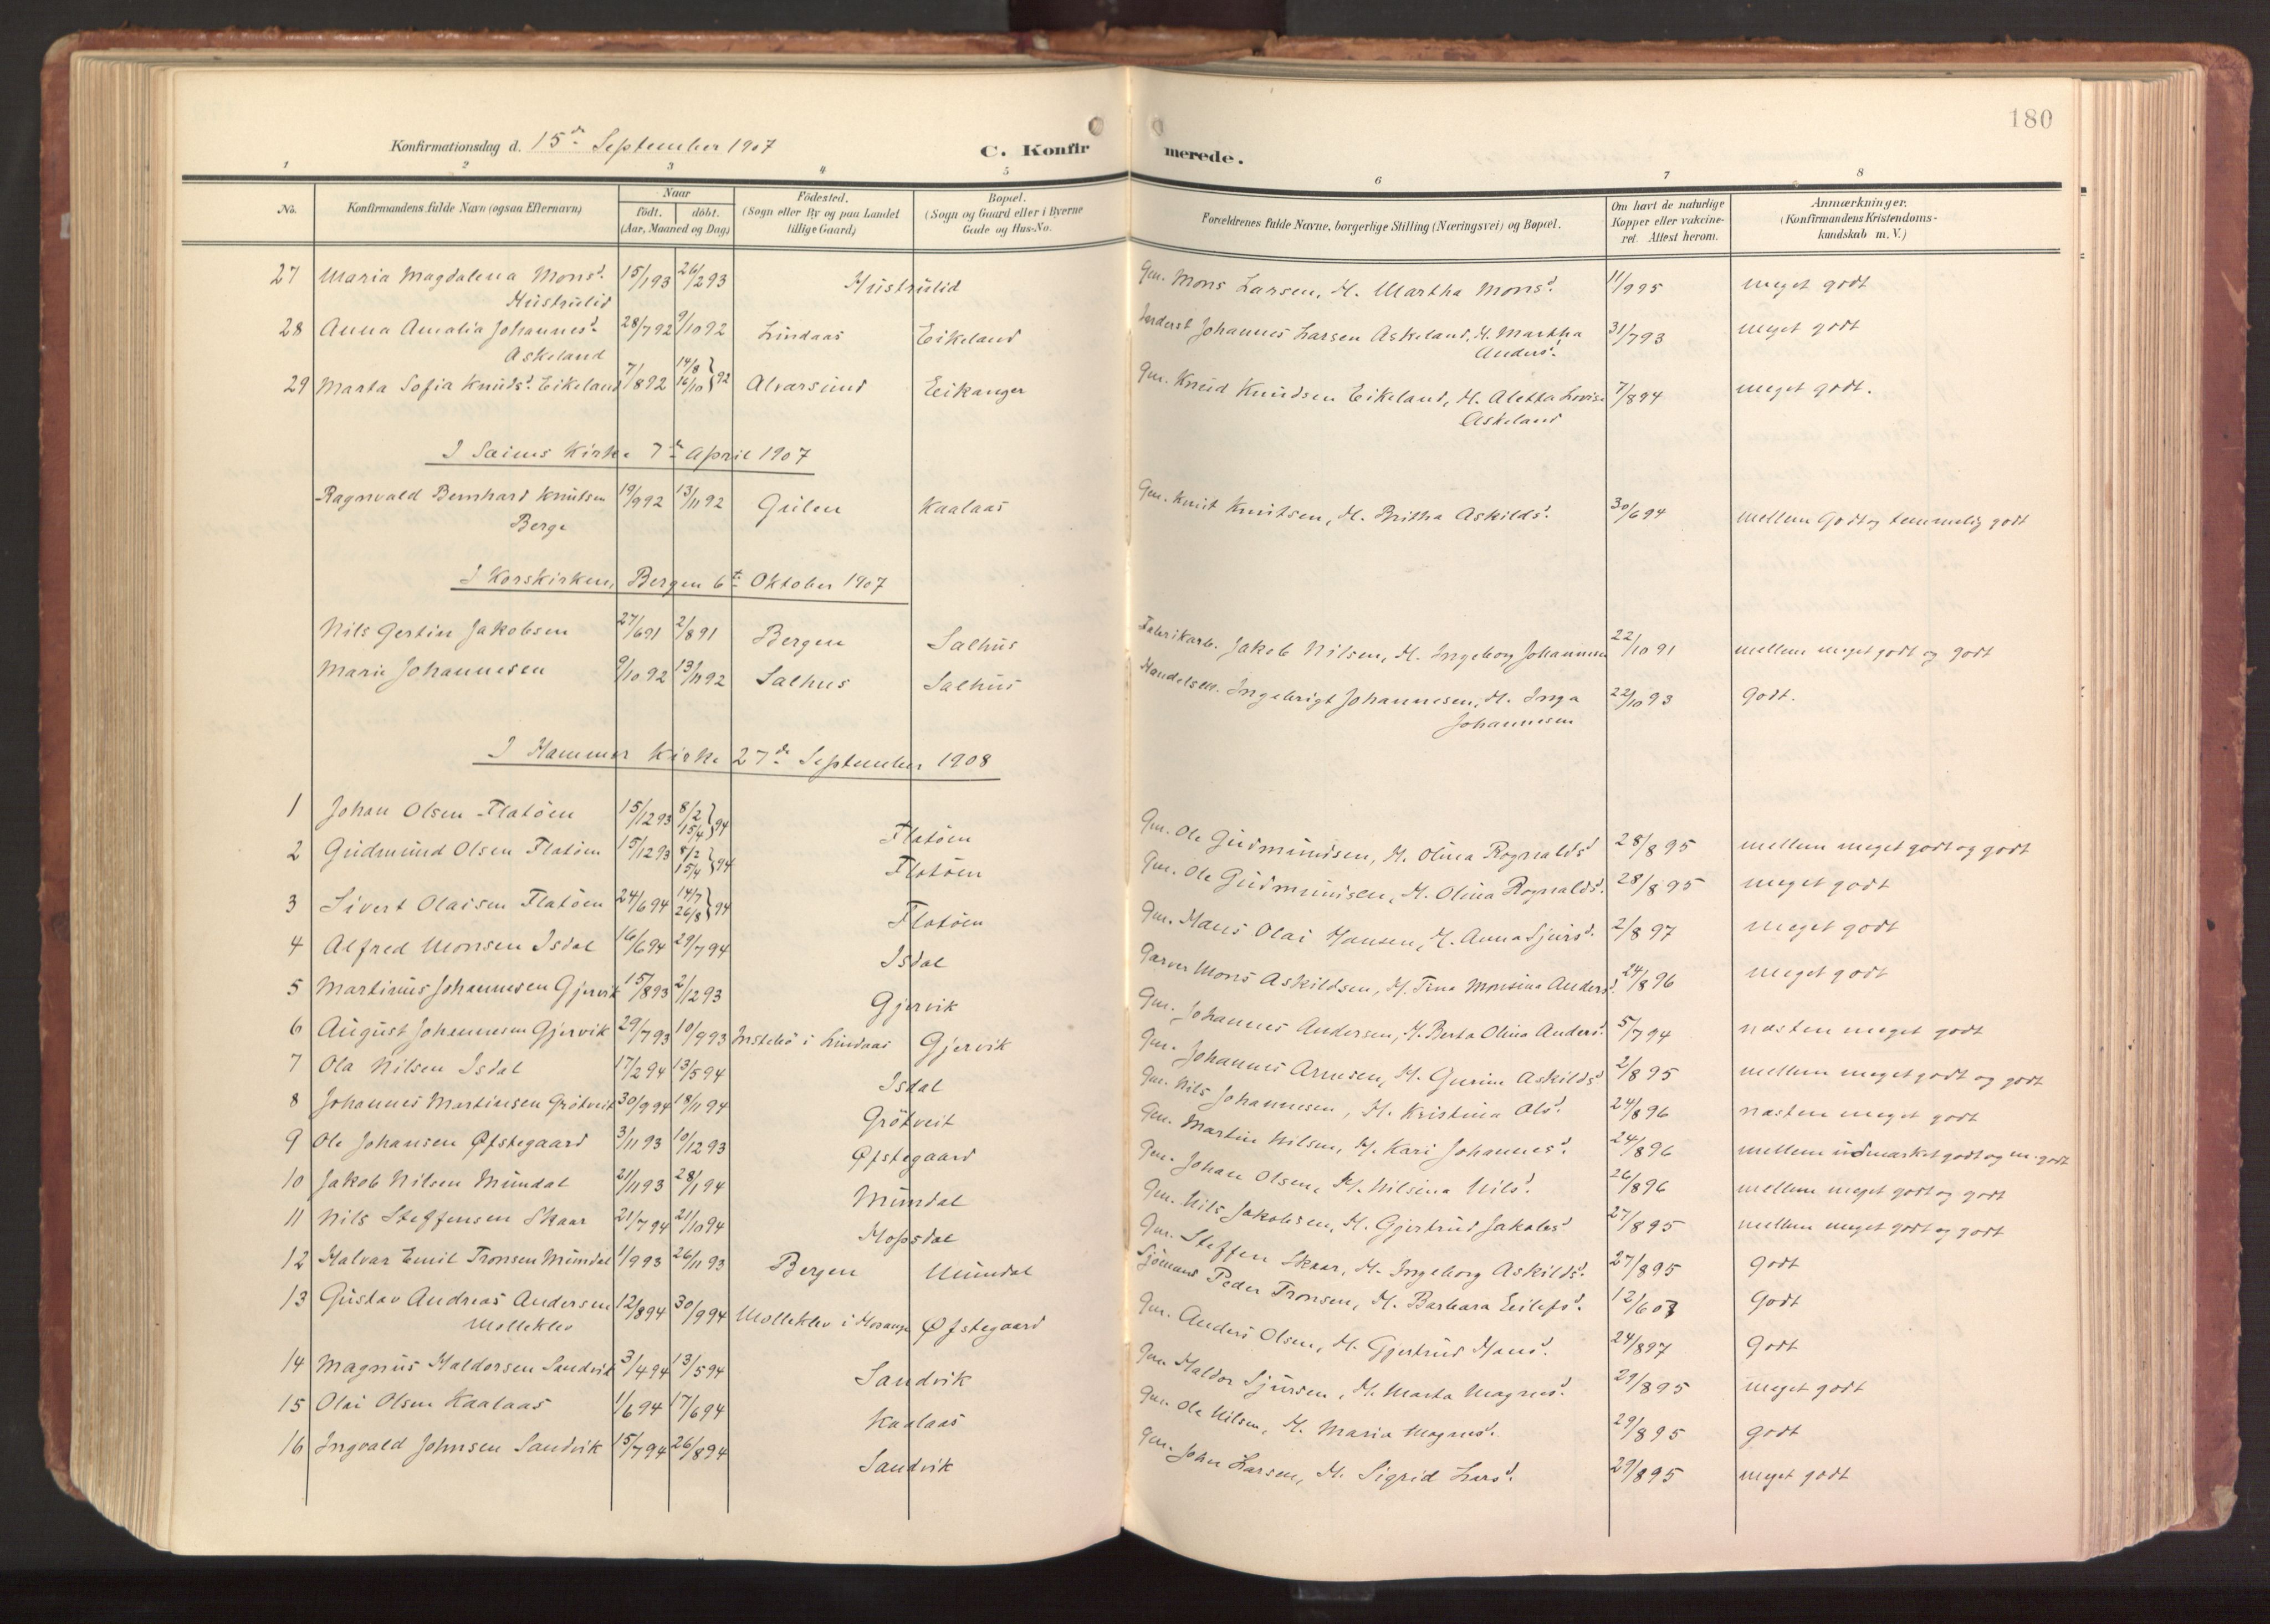 180
Konfirmationsdag d. 15de September 1907
C. Konfirmerede.
1 2 3 4 5 6 7 8
No. Konfirmandens fulde Navn (ogsaa Efternavn) Naar født. døbt. (Aar, Maaned og Dag) Födested. (Sogn eller By og paa Landet tillige Gaard) Bopæl. (Sogn og Gaard eller i Byerne Gade og Hus-No. Forældrenes fulde Navne, borgerlige Stilling (Næringsvei) og Bopæl. Om havt de naturlige Kopper eller vakcineret. Attest herom. Anmærkninger. (Konfirmandens Kristendomskundskab m. V.)
27 Maria Magdalena Monsd. Hustrulid 15/1 93 26/2 93 Hustrulid Gm. Mons Larsen, H. Martha Monsd. 11/9 95 meget godt
28 Anna Amalia Johannesd. Askeland 28/7 92 9/10 92 Lindaas Eikeland Johannes Larsen Askeland, H. Martha Andersd. 31/7 93 meget godt
29 Marta Sofia Knudsd. Eikeland 7/8 92 14/8 16/10 } 92 Alvarsund Eikanger Gm. Knud Knudsen Eikeland, H. Aletta Lovise Askeland 7/8 94 meget godt.
I Sæims Kirke 7de April 1907
Ragnvald Bernhard Knutsen Berge 19/9 92 13/11 92 Gulen Kaalaas Gm. Knut Knutsen, H. Britha Askildsd. 30/6 94 mellem Godt og temmelig godt
I Korskirken, Bergen 6te Oktober 1907
Nils Gertin Jakobsen 27/6 91 2/8 91 Bergen Salhus Fabrikarb. Jakob Nilsen, H. Ingeborg Johannesen 22/10 91 mellem meget godt og godt
Marie Johannesen 9/10 92 13/11 92 Salhus Salhus Handelsm. Ingebrigt Johannesen, H. Inga Johannesen 22/10 93 Godt.
I Hammer Kirke 27de September 1908
1 Johan Olsen Flatöen 15/12 93 8/2 15/4 } 94 Flatöen Gm. Ole Gudmundsen, H. Olina Rognaldsd. 28/8 95 mellem meget godt og godt
2 Gudmund Olsen Flatöen 15/12 93 8/2 15/4 } 94 Flatöen Gm. Ole Gudmundsen, H. Olina Rognaldsd. 28/8 95 meget godt
3 Sivert Olaisen Flatöen 24/6 94 14/7 26/8 } 94 Flatöen Gm. Hans Olai Hansen, H. Anna Sjursd. 2/8 97 meget godt
4 Alfred Monsen Isdal 16/6 94 29/7 94 Isdal Garver Mons Askildsen, H. Tina Monsina Andersd. 24/8 96 meget godt
5 Martinus Johannesen Gjervik 15/8 93 2/12 93 Gjervik Gm. Johannes Andersen, H. Berta Olina Andersd. 5/7 94 næsten meget godt
6 August Johannesen Gjervik 29/7 93 10/9 93 Instebö i Lindaas Gjervik Gm. Johannes Arnesen, H. Gurine Askildsd. 2/8 95 mellem meget godt og godt
7 Ola Nilsen Isdal 17/2 94 13/5 94 Isdal Gm. Nils Johannesen, H. Kristina Olsd. 24/8 96 næsten meget godt
8 Johannes Martinsen Grötveit 30/9 94 18/11 94 Grötveit Gm. Martin Nilsen, H. Kari Johannesd. 24/8 96 mellem udmærket godt og m. godt
9 Ole Johansen Øfstegaard 3/11 93 10/12 93 Øfstegaard Gm. Johan Olsen, H. Nilsina Nilsd. 26/8 96 mellem meget godt og godt
10 Jakob Nilsen Mundal 21/11 93 28/1 94 Mundal Gm. Nils Jakobsen, H. Gjertrud Jakobsd. 27/8 95 mellem meget godt og godt
11 Nils Steffensen Skaar 21/7 94 21/10 94 Hopsdal Gm. Steffen Skaar, H. Ingeborg Askildsd. 27/8 95 godt
12 Halvar Emil Tronsen Mundal 1/9 93 26/11 93 Bergen Mundal Sjömand Peder Tronsen, H. Barbara Eilefsd. 12/6 03 Godt
13 Gustav Andreas Andersen Molleklev 12/8 94 30/9 94 Molleklev i Hosanger Øfstegaard Gm. Anders Olsen, H. Gjertrud Hansd. 24/8 97 Godt
14 Magnus Haldorsen Sandvik 3/4 94 13/5 94 Sandvik Gm Haldor Sjursen, H. Marta Magnusd. 29/8 95 meget godt
15 Olai Olsen Kaalaas 1/6 94 17/6 94 Kaalaas Gm. Ole Nilsen, H. Maria Magnusd. 29/8 95 godt
16 Ingvald Johnsen Sandvik 15/7 94 26/8 94 Sandvik Gm. John Larsen, H. Sigrid Larsd. 29/8 95 meget godt